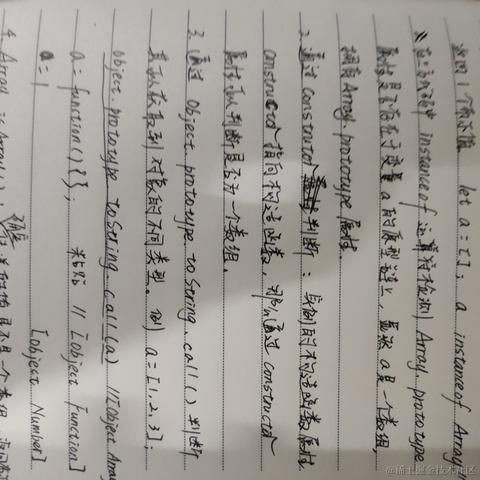 返回1个布尔值 let a=[]; a instanceof Array //
在a的原型中 instanceof 运算符检测 Array.prototype
属性是否存在于变量a的原型链上，显然a是一个数组，
拥有 Array.prototype 属性.
2. 通过 constructor 判断：实例的构造函数属性
constructor 指向构造函数，那么通过 constructor
属性可以判断是否为一个数组.
3. 通过 Object.prototype.toString.call() 判断
其可以获取到对象的不同类型. 例 a=[1,2,3];
Object.prototype.toString.call(a) //[Object Array
a=function(){}; // [object Function]
a=1 [object Number]
4. Array.isArray():
是否是一个数组
@稀土掘金技术社区